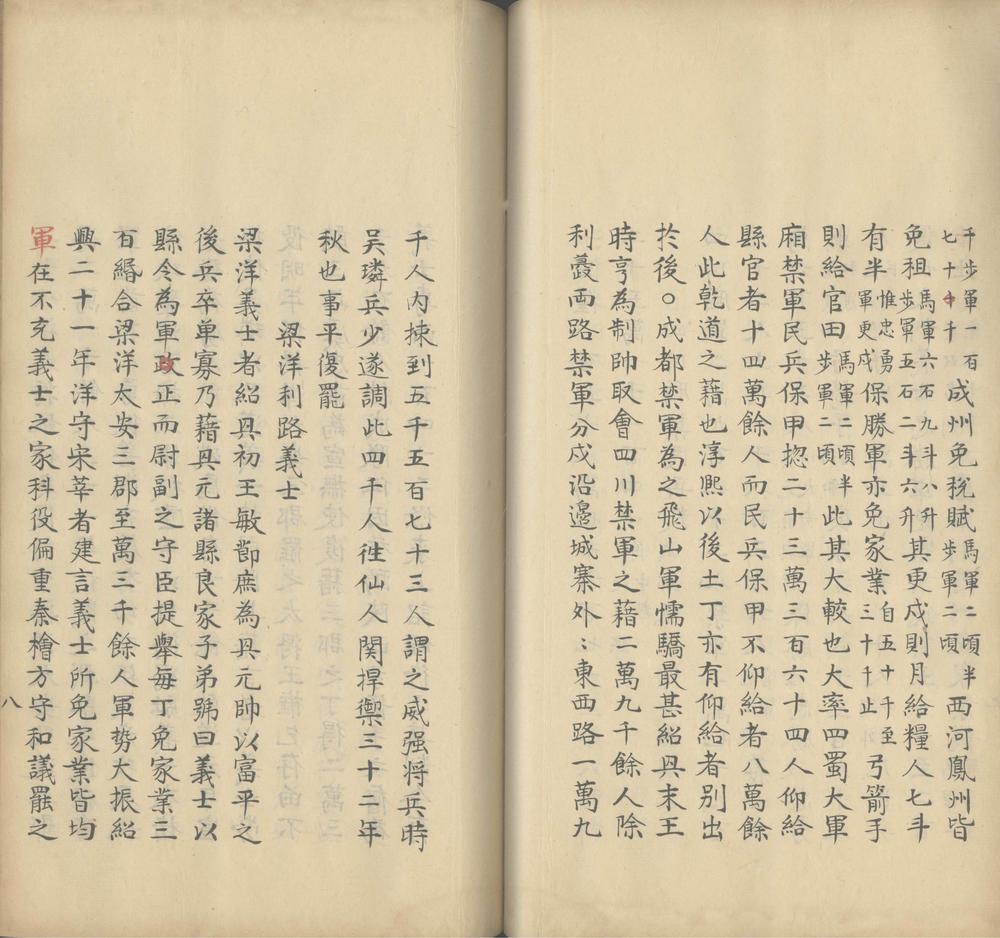 千步軍一石七十千成州免稅賦馬軍二頃半步軍二頃西河鳳州皆
免租馬軍六石九斗八升步軍五石二斗六升其更戍則月給糧人七斗
有半惟忠勇軍更戍保勝軍亦免家業自五十千至三十千止弓箭手
則給官田馬軍二頃半步軍二頃此其大較也大率四蜀大軍
廂禁軍民兵保甲揔二十三萬三百六十四人仰給
縣官者十四萬餘人而民兵保甲不仰給者八萬餘
人此乾道之藉也淳熙以後土丁亦有仰給者別出
於後○成都禁軍為之飛山軍懦驕最甚紹興末王
時亨為制帥取會四川禁軍之藉二萬九千餘人除
利夔両路禁軍分戍沿邊城寨外:東西路一萬九
千人內揀到五千五百七十三人謂之威强将兵時
吳璘兵少遂調此四千人徃仙人関捍禦三十二年
秋也事平復罷
梁洋利路義士
梁洋義士者紹興初王敏節庶為興元帥以富平之
後兵卒单寡乃藉興元諸縣良家子弟號曰義士以
縣令為軍政正而尉副之守臣提舉每丁免家業三
百緡合梁洋太安三郡至萬三千餘人軍勢大振紹
興二十一年洋守宋莘者建言義士所免家業皆均
軍在不充義士之家科役偏重秦檜方守和議罷之
八